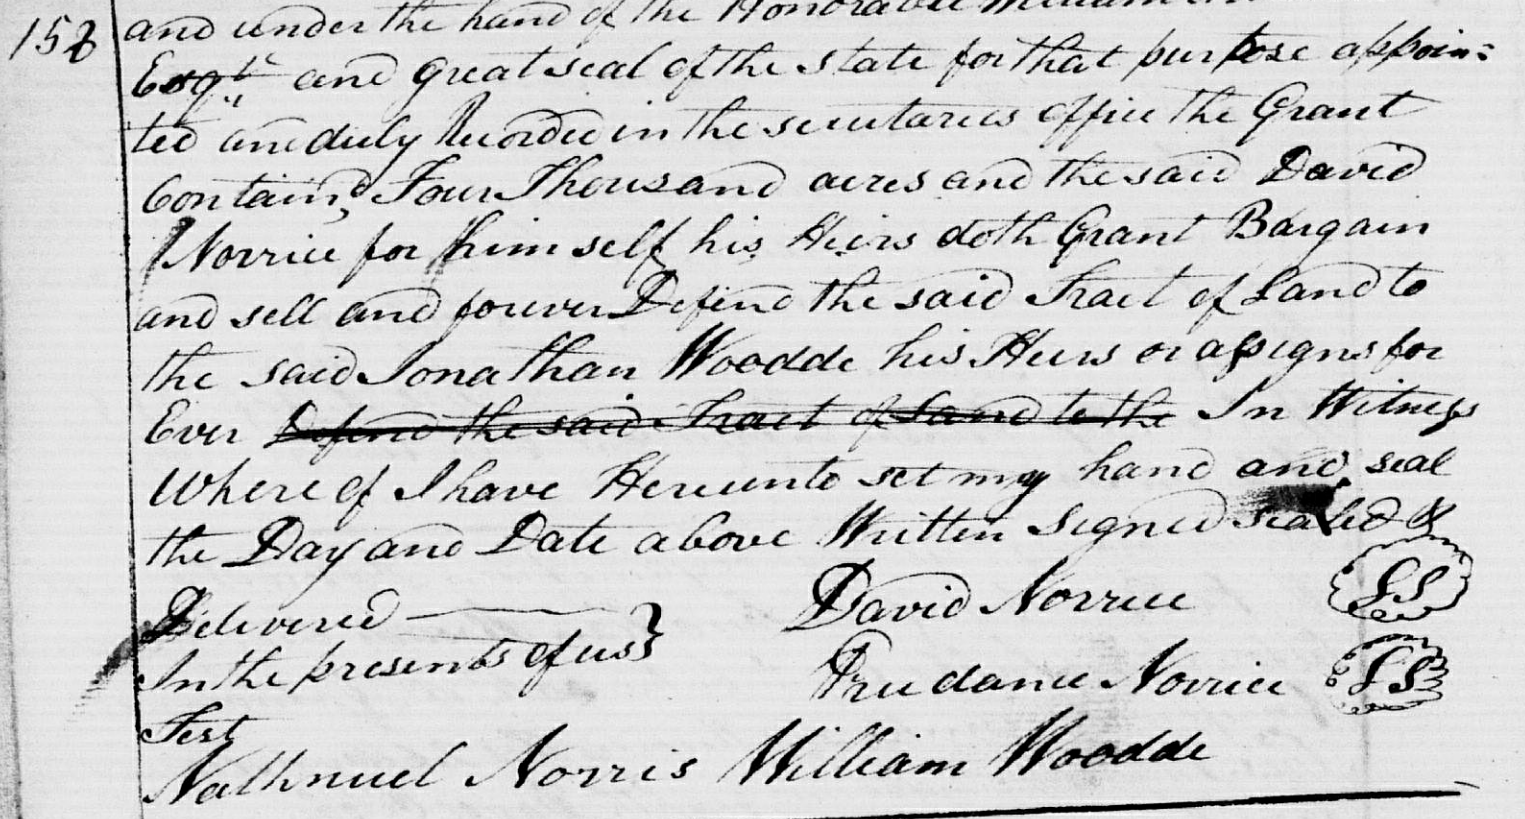 152
and under the hand of the Honorable William
Esqr. and great seal of the state for that purpose appoin=
ted and duly Recorded in the secutaries office the Grant
Containd, Four Thousand acres and the said David
Norrice for him self his Heirs doth Grant Bargain
and sell and forever Defend the said Tract of Land to
the said Jonathan Woodde his Heirs or assigns for
Ever Defend the said Tract of Land to the In Witness
Where of I have Hereunto set my hand and seal
the Day and Date above Written signed sealed &
Delivered
David Norrice LS
In the presents of uss
Prudance Norrice LS
Test
Nathnuel Norris William Woodde